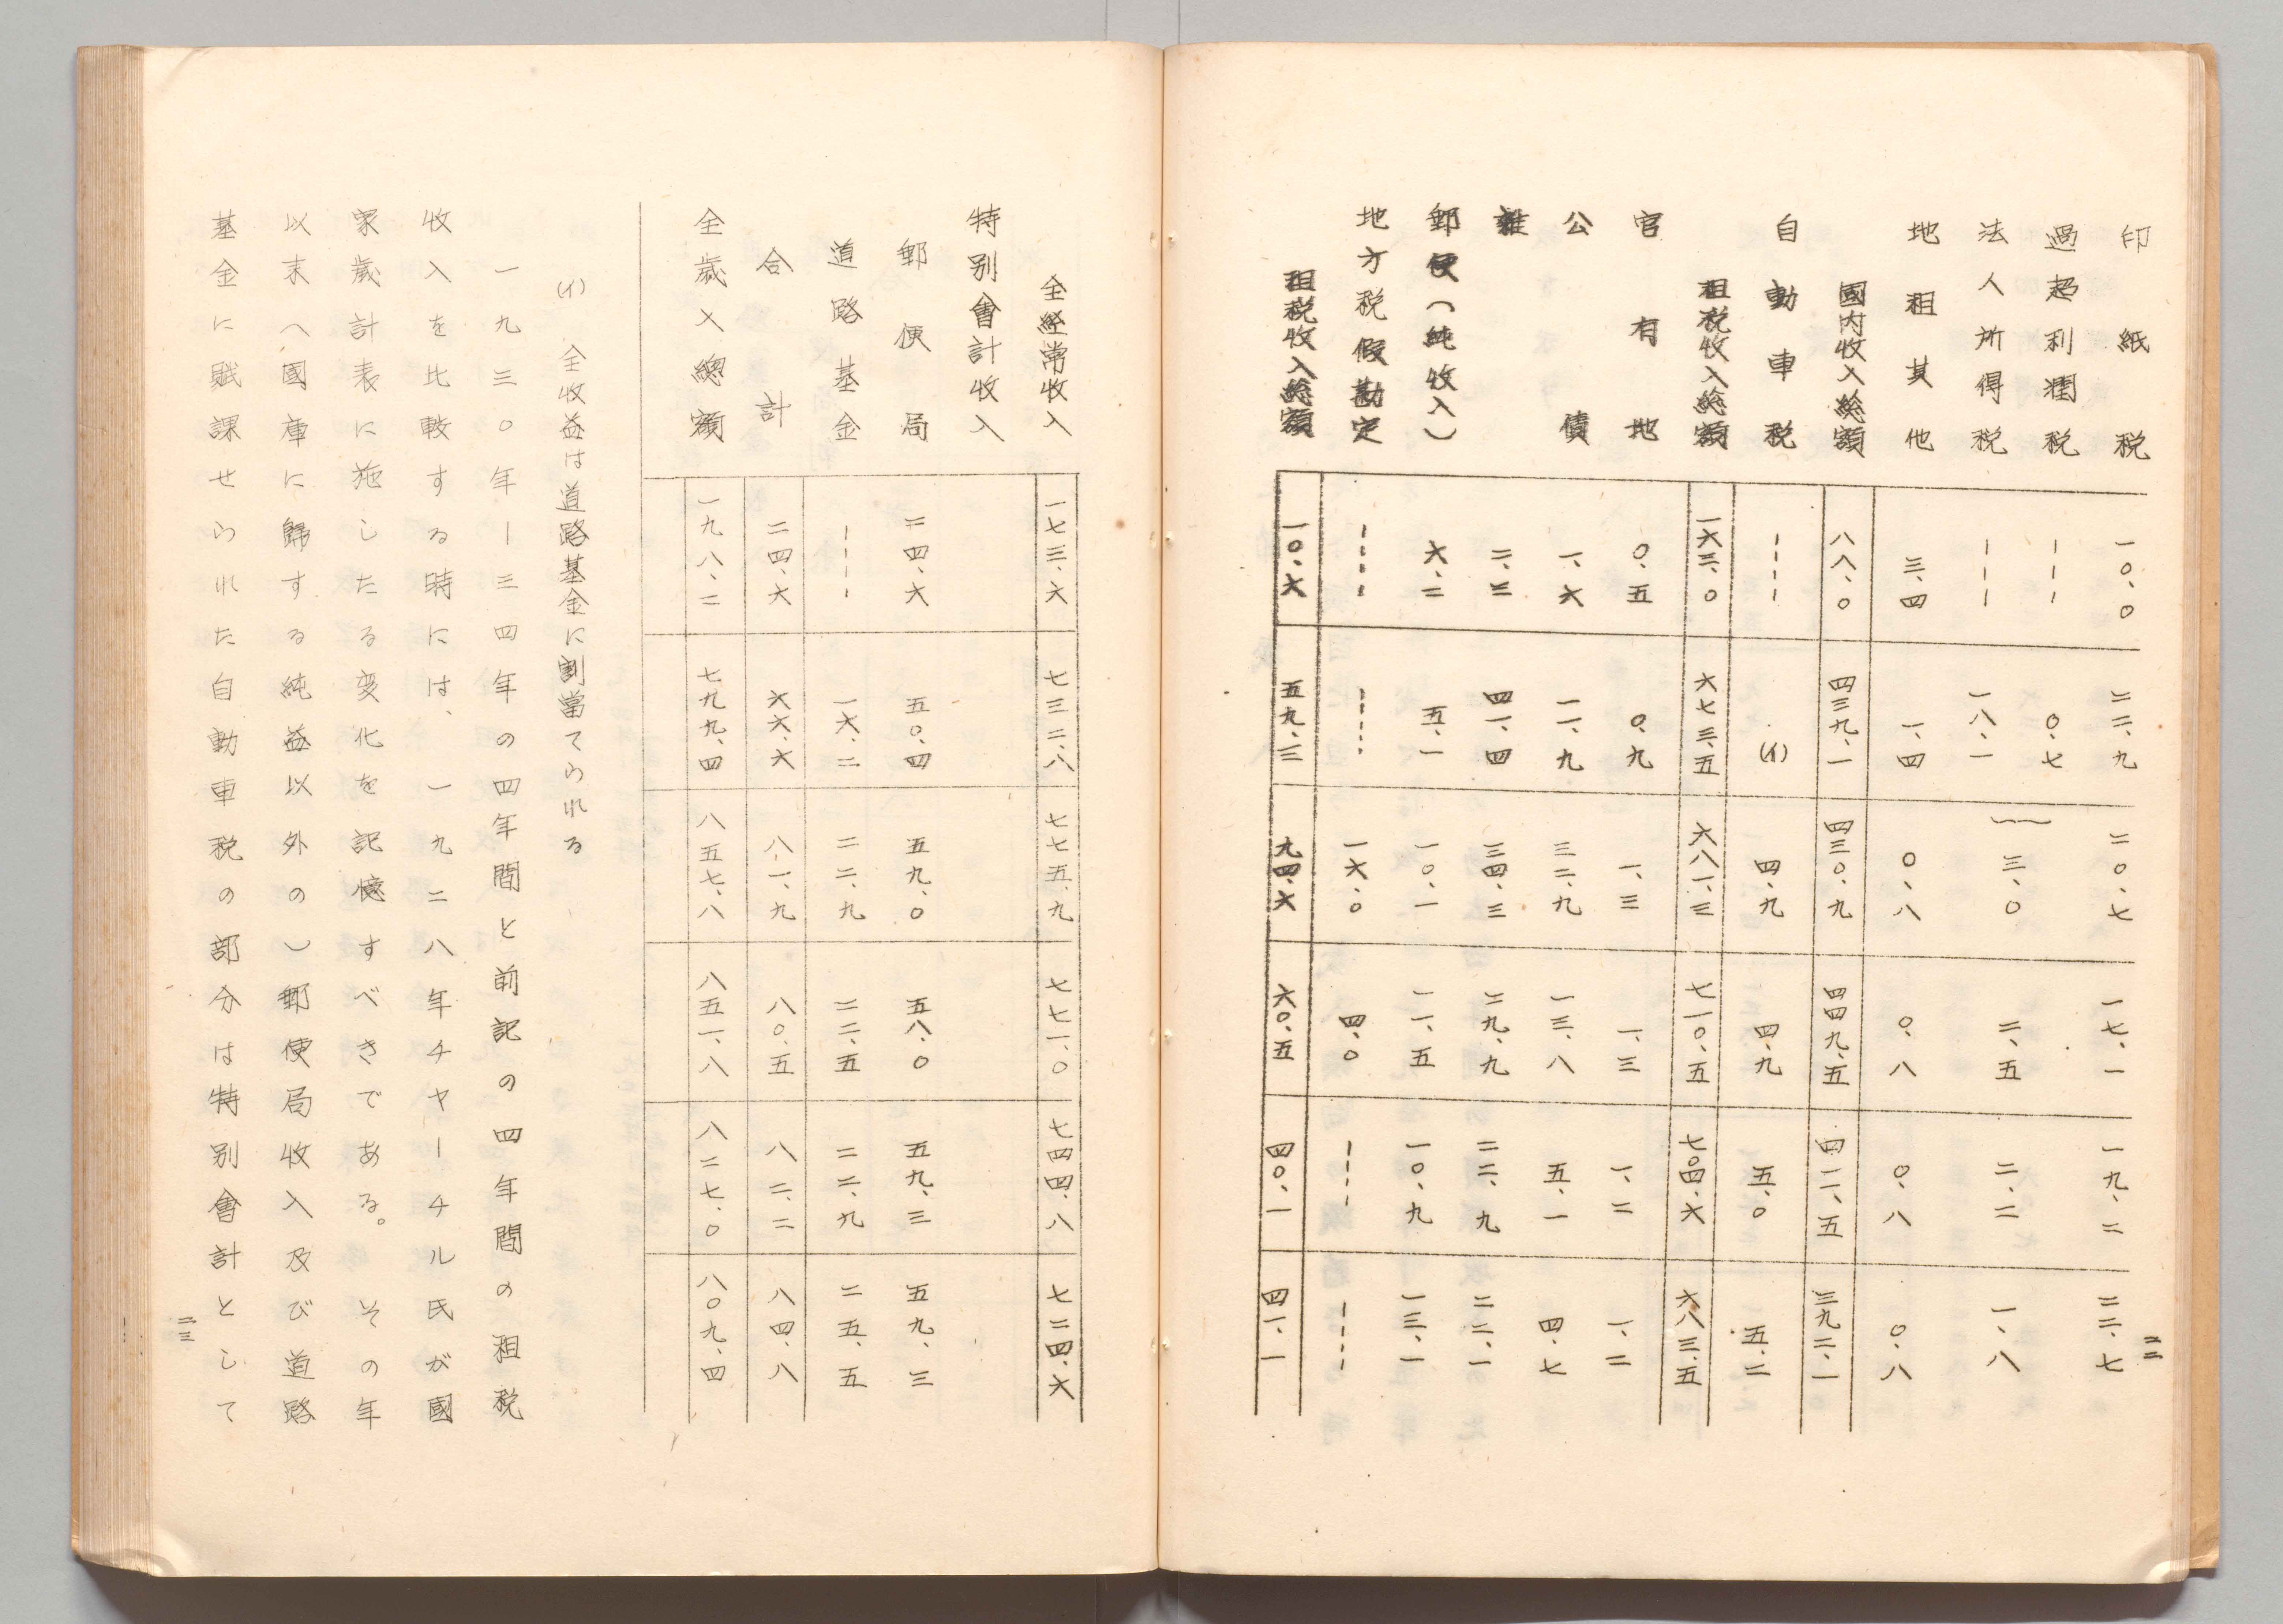 印紙税 一〇、〇 二二、九 二〇、七 一七、一 一九、二 二二、七
過超利潤税 ーーー 〇、七
法人所得税 ーーー 一八、一 三、〇 二、五 二、二 一、八
地租其他 三、四 一、四 〇、八 〇、八 〇、八 〇、八
國内收入総額 八八、〇 四三九、一 四三〇、九 四四九、五 四一一、五 三九二、一
自動車税 ーーー (イ) 四、九 四、九 五、〇 五、二
租税收入総額 一六三、〇 六七三、五 六八一、三 七一〇、五 七〇四、六 六八三、五
官有地 〇、五 〇、九 一、三 一、三 一、二 一、二
公債 一、六 一一、九 三二、九 一三、八 五、一 四、七
雜 二、三 四一、四 三四、三 二九、九 二二、九 二二、一
郵便(純收入) 六、二 五、一 一〇、一 一一、五 一〇、九 一三、一
地方税假勘定 ーーーー ーーーー 一六、〇 四、〇 ーーーー ーーーー
租税收入総額 一〇、六 五九、三 九四、六 六〇、五 四〇、一 四一、一
二二
全経常收入 一七三、六 七三二、八 七七五、九 七七一、〇 七四四、八 七二四、六
特別會計收入
郵便局 二四、六 五〇、四 五九、〇 五八、〇 五九、三 五九、三
道路基金 ーーーー 一六、二 二二、九 二二、五 二二、九 二五、五
合計 二四、六 六六、六 八一、九 八〇、五 八二、二 八四、八
全歳入總額 一九八、二 七九九、四 八五七、八 八五一、八 八二七、〇 八〇九、四
(イ) 全收益は道路基金に割當てられる
一九三〇年ー三四年の四年間と前記の四年間の租税
收入を比較する時には、一九二八年チヤーチル氏が國
家歳計表に施したる変化を記憶すべきである。その年
以末へ國庫に歸する純益以外の)郵便局收入及び道路
基金に賦課せられた自動車税の部分は特別會計として
二三